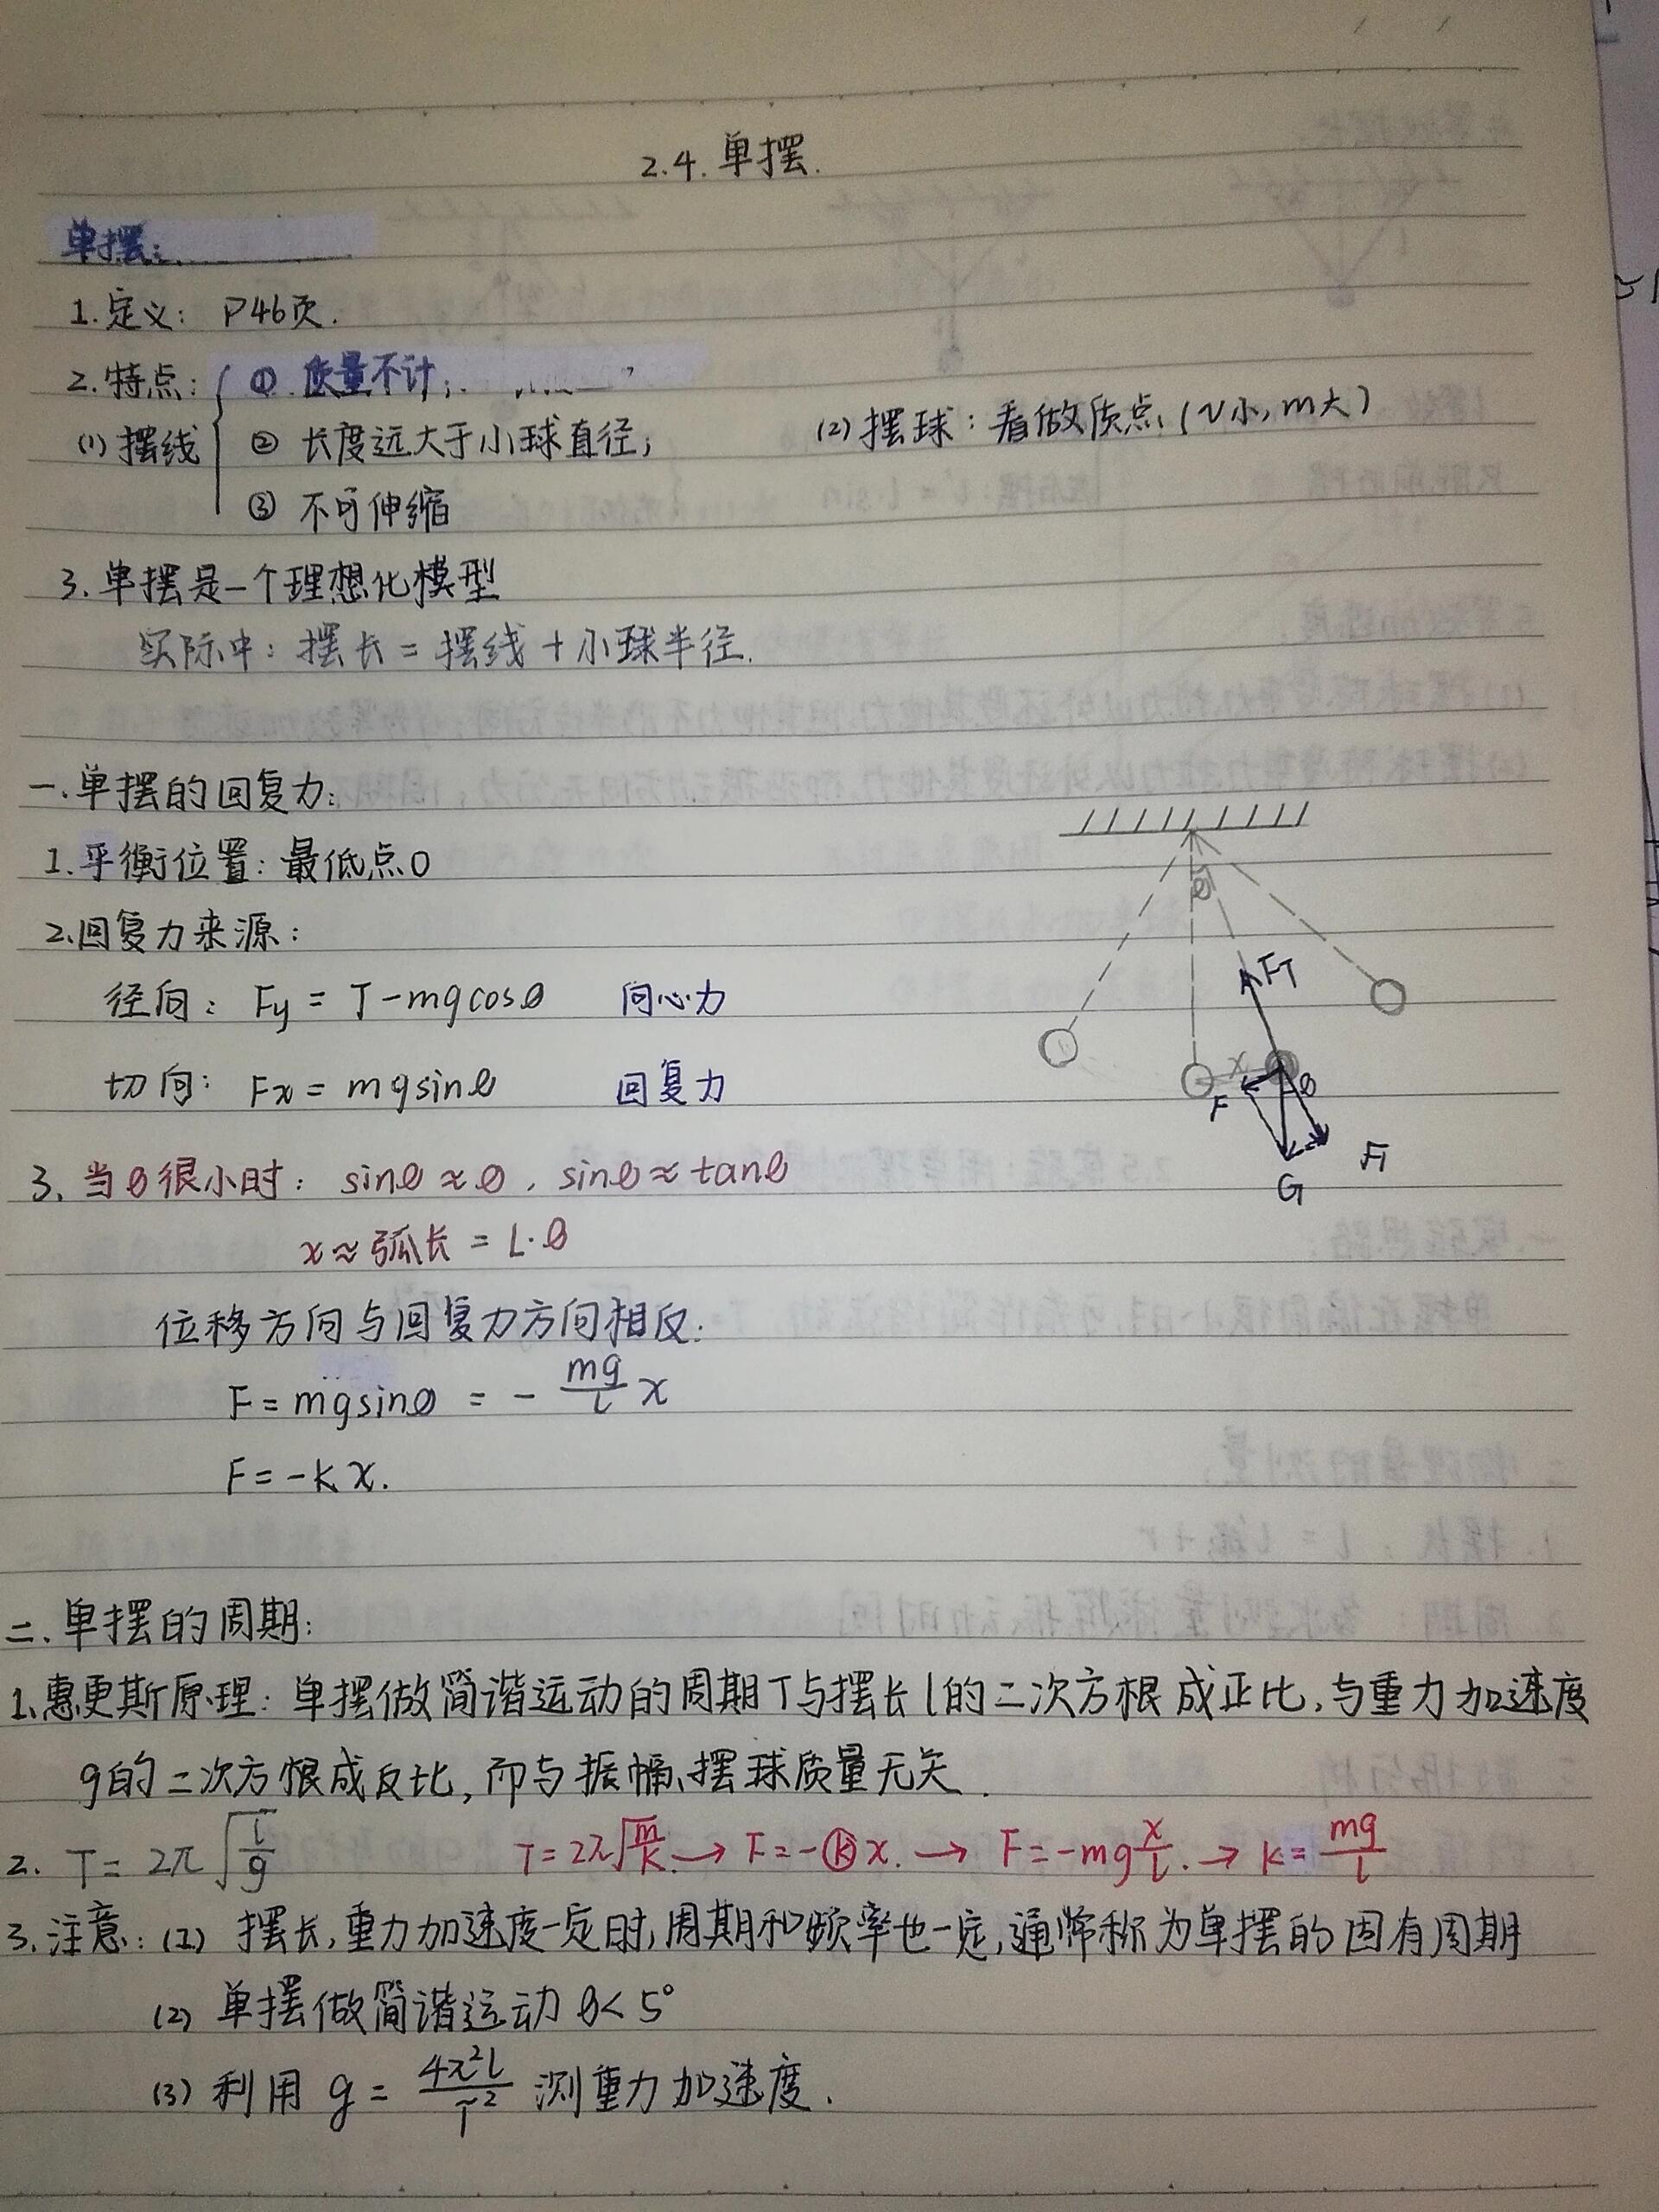 2.4.单摆.
单摆:
1.定义: P46页.
2.特点: ① 质量不计;
(1)摆线 ② 长度远大于小球直径; (2)摆球:看做质点(V小,m大)
③ 不可伸缩
3.单摆是一个理想化模型
实际中:摆长=摆线+小球半径.
一.单摆的回复力:
1.平衡位置:最低点O
2.回复力来源:
径向: Fy = T-mgcosθ 向心力
切向: Fx = mgsinθ 回复力
θ
FT
x
F
θ
F1
G
3.当θ很小时: sinθ≈θ, sinθ≈tanθ
x≈弧长=L·θ
位移方向与回复力方向相反:
F=mgsinθ = - mg/l x
F=-kx.
二.单摆的周期:
1.惠更斯原理:单摆做简谐运动的周期T与摆长l的二次方根成正比,与重力加速度
g的二次方根成反比,而与振幅、摆球质量无关.
2. T=2π√(l/g) T=2π√(m/k) → F=-ⓚx. → F=-mg x/l. → k= mg/l
3.注意:(1) 摆长,重力加速度一定时,周期和频率也一定,通常称为单摆的固有周期
(2) 单摆做简谐运动 θ<5°
(3) 利用 g= 4π²l/T² 测重力加速度.